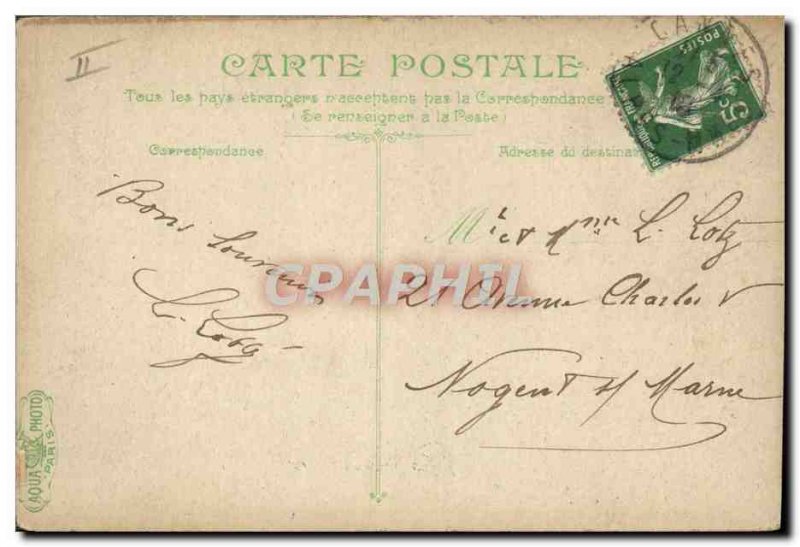 II
CARTE POSTALE
Tous les pays étrangers n'acceptent pas la Correspondance
(Se renseigner à la Poste)
Correspondance
Adresse du destinat
POSTES
5c
Bons Souvenirs
L. Lotz
Mr et Mme L. Lotz
21 Avenue Charles V
Nogent s/ Marne
CPAPHIL
AQUA PHOTO
PARIS